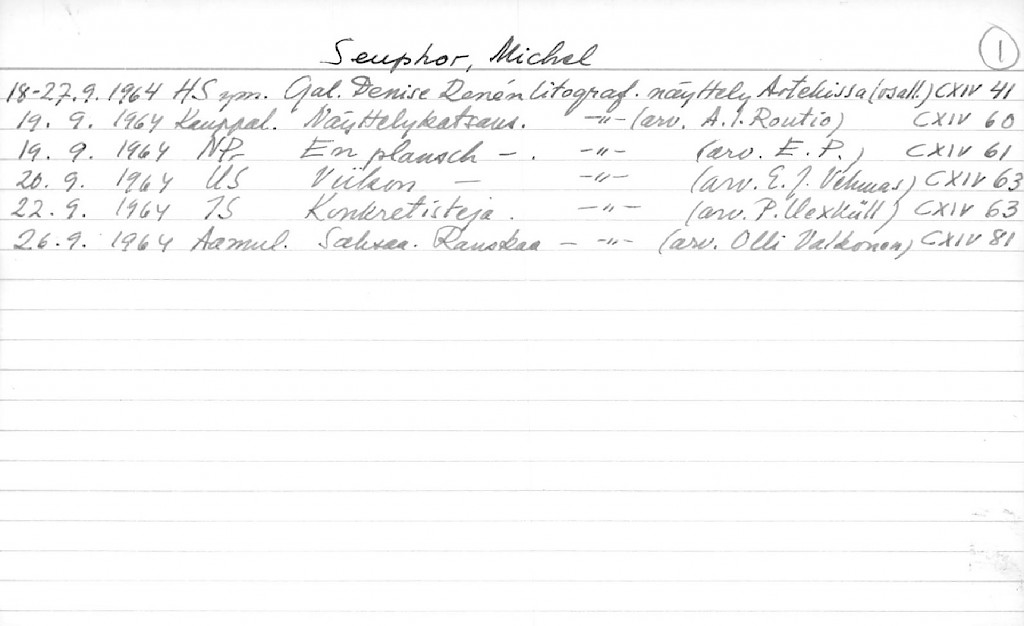 Seuphor, Michel
1
18-27.9.1964 HS ym. Gal. Denise Renén litograf. näyttely Artekissa (osall.) CXIV 41
19. 9. 1964 Kauppal. Näyttelykatsaus. -"- (arv. A.I. Routio) CXIV 60
19. 9. 1964 NPr En plansch - . -"- (arv. E.P.) CXIV 61
20. 9. 1964 US Viikon - -"- (arv. E.J. Vehmas) CXIV 63
22. 9. 1964 IS Konkretisteja. -"- (arv. P. Uexküll) CXIV 63
26. 9. 1964 Aamul. Saksaa. Ranskaa - -"- (arv. Olli Valkonen) CXIV 81